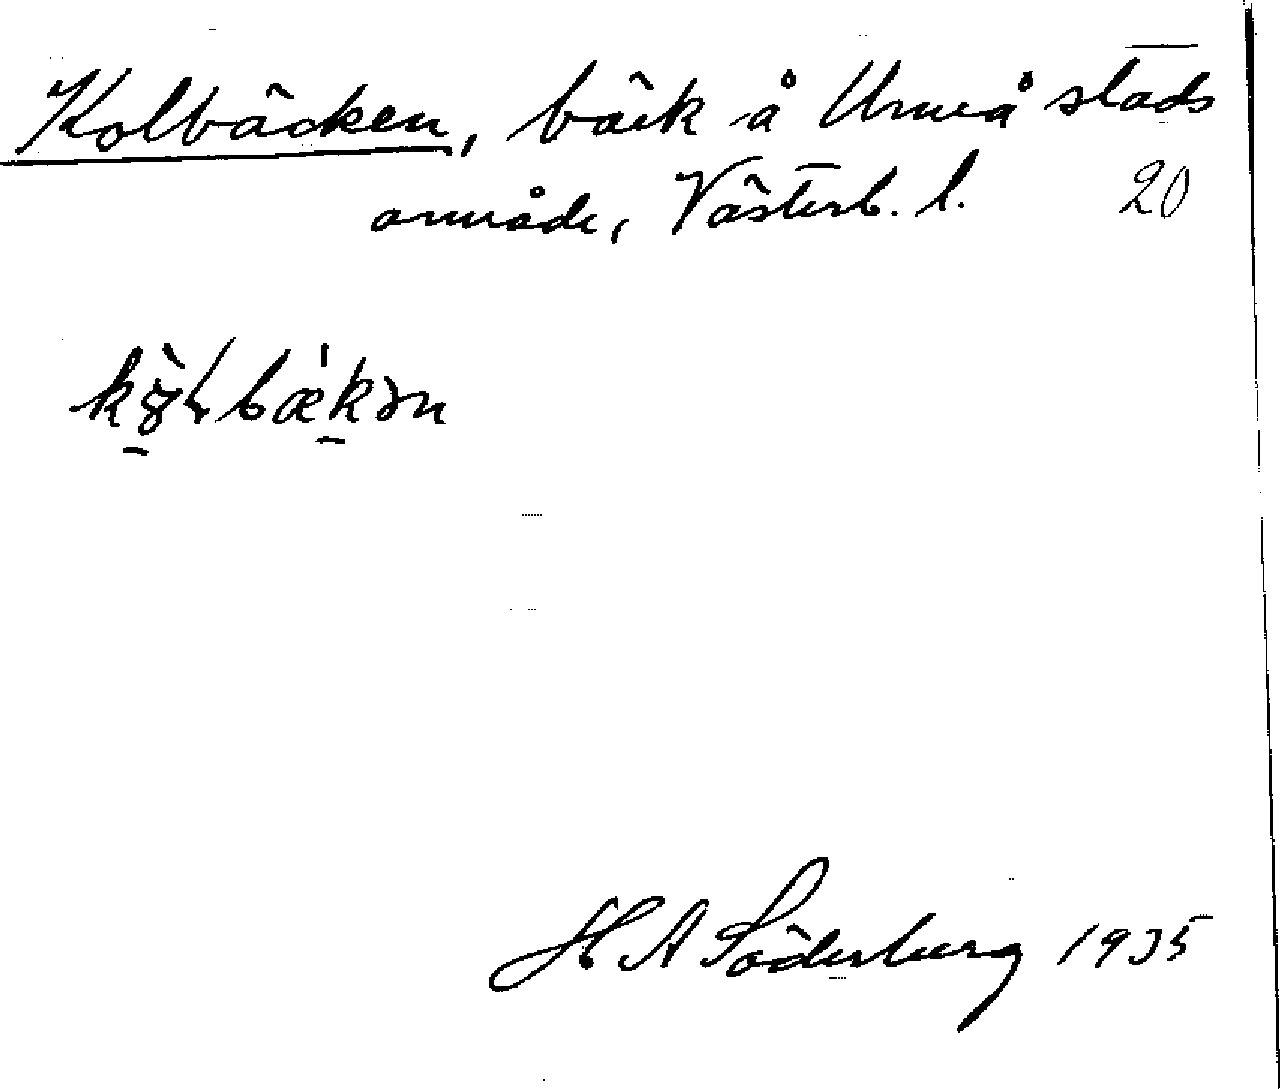 Kolbäcken, bäck å Umeå stads
område, Västerb. l. 20
H A Söderberg 1935